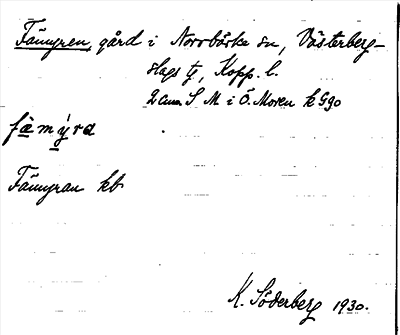 Fämyren, gård i Norrbärke sn, Västerberg-
slags tg, Kopp. l.
2 cm S M i Ö. Moren k G90
fà mýra
Fämyran kb
K. Söderberg 1930.